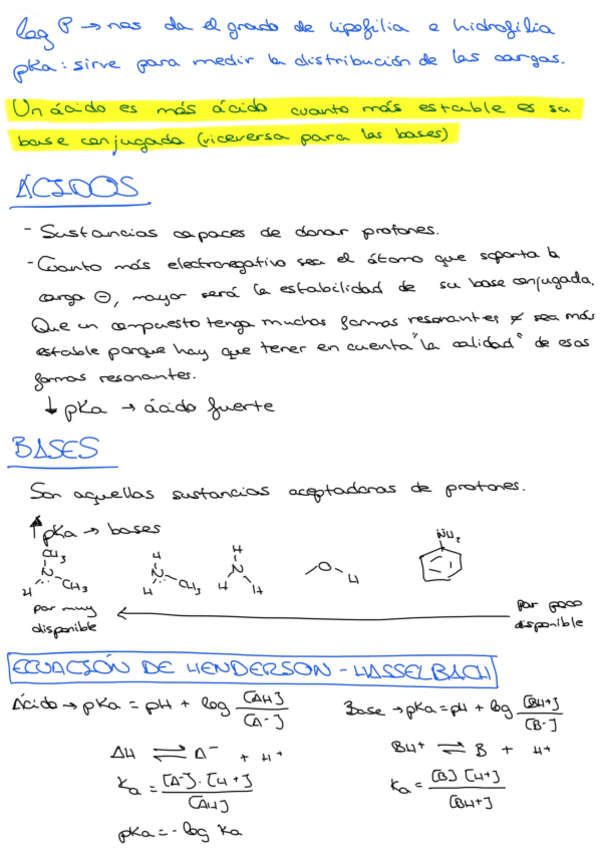 log P → nos da el grado de lipofilia e hidrofilia
pKa: sirve para medir la distribución de las cargas.
Un ácido es más ácido cuanto más estable es su
base conjugada (viceversa para las bases)
ÁCIDOS
- Sustancias capaces de donar protones.
- Cuanto más electronegativo sea el átomo que soporta la
carga ⊖, mayor será la estabilidad de su base conjugada.
Que un compuesto tenga muchas formas resonantes ≠ sea más
estable porque hay que tener en cuenta "la calidad" de esas
formas resonantes.
↓ pKa → ácido fuerte
BASES
Son aquellas sustancias aceptadoras de protones.
↑ pKa → bases
CH3
N
H
CH3
H
N
H
CH3
H
N
H
H
O
H
NH2
par muy
disponible
par poco
disponible
ECUACIÓN DE HENDERSON-HASSELBACH
Ácido → pKa = pH + log [AH] / [A-]
Base → pKa = pH + log [BH+] / [B-]
AH ⇌ A- + H+
BH+ ⇌ B + H+
Ka = [A-]·[H+] / [AH]
Ka = [B] [H+] / [BH+]
pKa = - log Ka